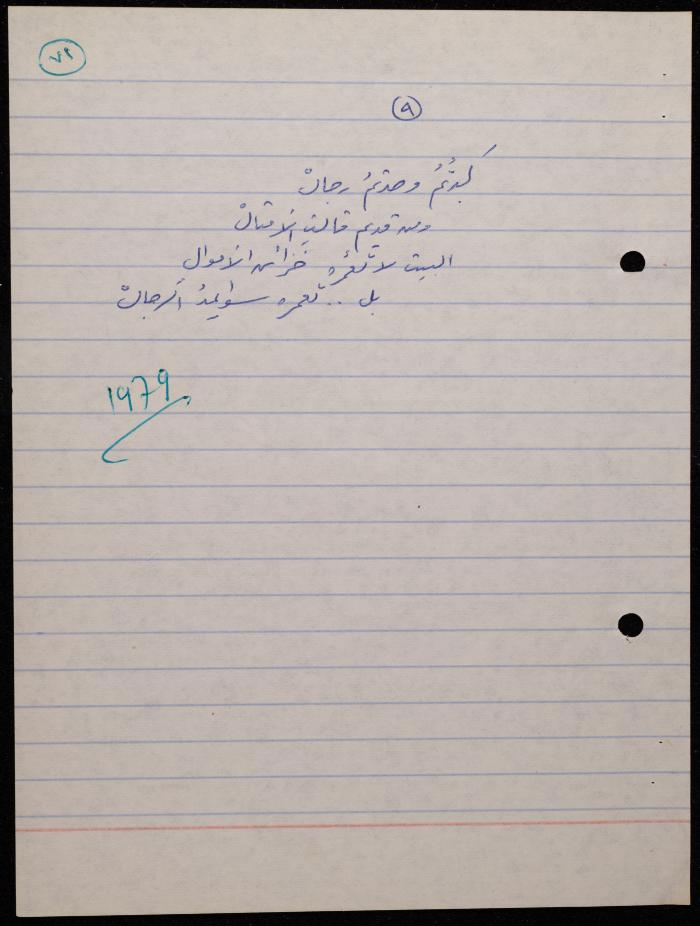 ٧٩
٩
كبرتُمُ وصرتمُ رجالْ
ومن قديم قالتِ الامثالْ
البيت لا تعمُره خزائن الاموالِ
بل .. تعمره سواعدُ الرجالْ
1979